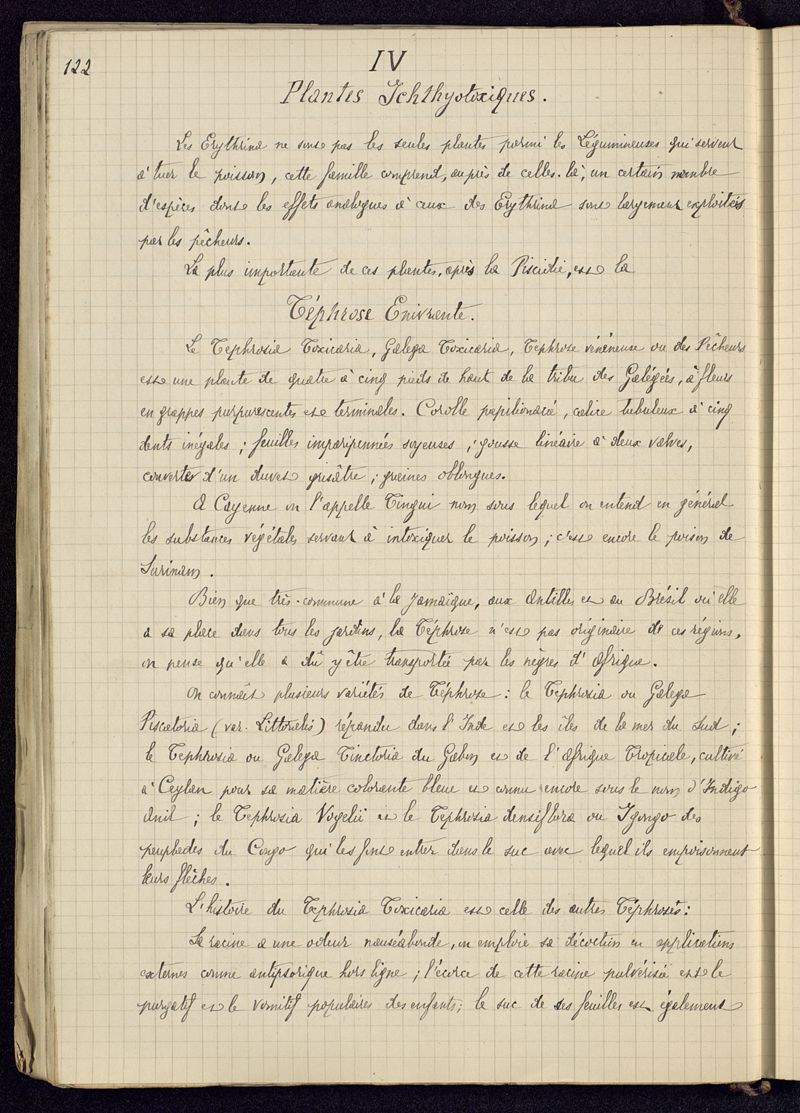 122
IV
Plantes Ichthyotoxiques.
Les Erythrina ne sont pas les seules plantes parmi les Légumineuses qui servent
à tuer le poisson, cette famille comprend, auprès de celles-là, un certain nombre
d'espèces dont les effets analogues à ceux des Erythrina sont largement exploités
par les pêcheurs.
La plus importante de ces plantes, après la Piscidie, est la
Téphrose Enivrante.
Le Tephrosia Toxicaria, Galega Toxicaria, Téphrose vénéneuse ou des Pêcheurs
est une plante de quatre à cinq pieds de haut de la tribu des Galégées, à fleurs
en grappes purpurescentes et terminales. Corolle papilionacé, calice tubuleux à cinq
dents inégales ; feuilles imparipennées soyeuses ; gousse linéaire à deux valves,
couvertes d'un duvet grisâtre ; graines oblongues.
A Cayenne on l'appelle Tingui nom sous lequel on entend en général
les substances végétales servant à intoxiquer le poisson ; c'est encore le poison de
Surinam.
Bien que très-commune à la Jamaïque, aux Antilles et au Brésil où elle
a sa place dans tous les jardins, la Téphrose n'est pas originaire de ces régions,
on pense qu'elle a dû y être transportée par les nègres d'Afrique.
On connaît plusieurs variétés de Téphrose : le Tephrosia ou Galega
Piscatoria (var. Littoralis) répandu dans l'Inde et les îles de la mer du Sud ;
le Tephrosia ou Galega Tinctoria du Gabon et de l'Afrique Tropicale, cultivé
à Ceylan pour sa matière colorante bleue et connu encore sous le nom d'Indigo
Anil ; le Tephrosia Vogelii et le Tephrosia densiflora ou Igongo des
peuplades du Congo qui les font entrer dans le suc avec lequel ils empoisonnent
leurs flèches.
L'histoire du Tephrosia Toxicaria est celle des autres Téphroses :
Sa racine a une odeur nauséabonde, on emploie sa décoction en applications
externes comme antipsorique hors ligne ; l'écorce de cette racine pulvérisée est le
purgatif et le vomitif populaires des enfants ; le suc de ses feuilles est également